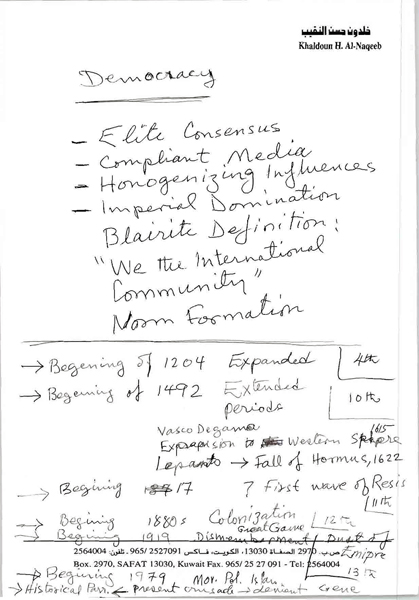 خلدون حسن النقيب
Khaldoun H. Al-Naqeeb
Democracy
– Elite Consensus
– Compliant Media
– Honogenizing Influences
– Imperial Domination
Blairite Definition:
"We the International
Community"
Norm Formation
→ Begening of 1204 Expanded 4th
→ Begening of 1492 Extended 10th
Periods
Vasco Degama 1615
to Western
Lepanto → Fall of Hormus, 1622
→ Begining 17 ? First wave of Resis
11th
→ Begining 1880s Colonization 12th
Great Game
→ Begining 1919 Dismemberment of
2564004 الصفاة 13030، الكويت، فاكس 2527091 /965 تلفون: 2564004
Empire
Box. 2970, SAFAT 13030, Kuwait Fax. 965/ 25 27 091 - Tel: 2564004
13th
→ Begining 1979 Mov. Pol. Islam
→ Historical Parr. ← present crusade →